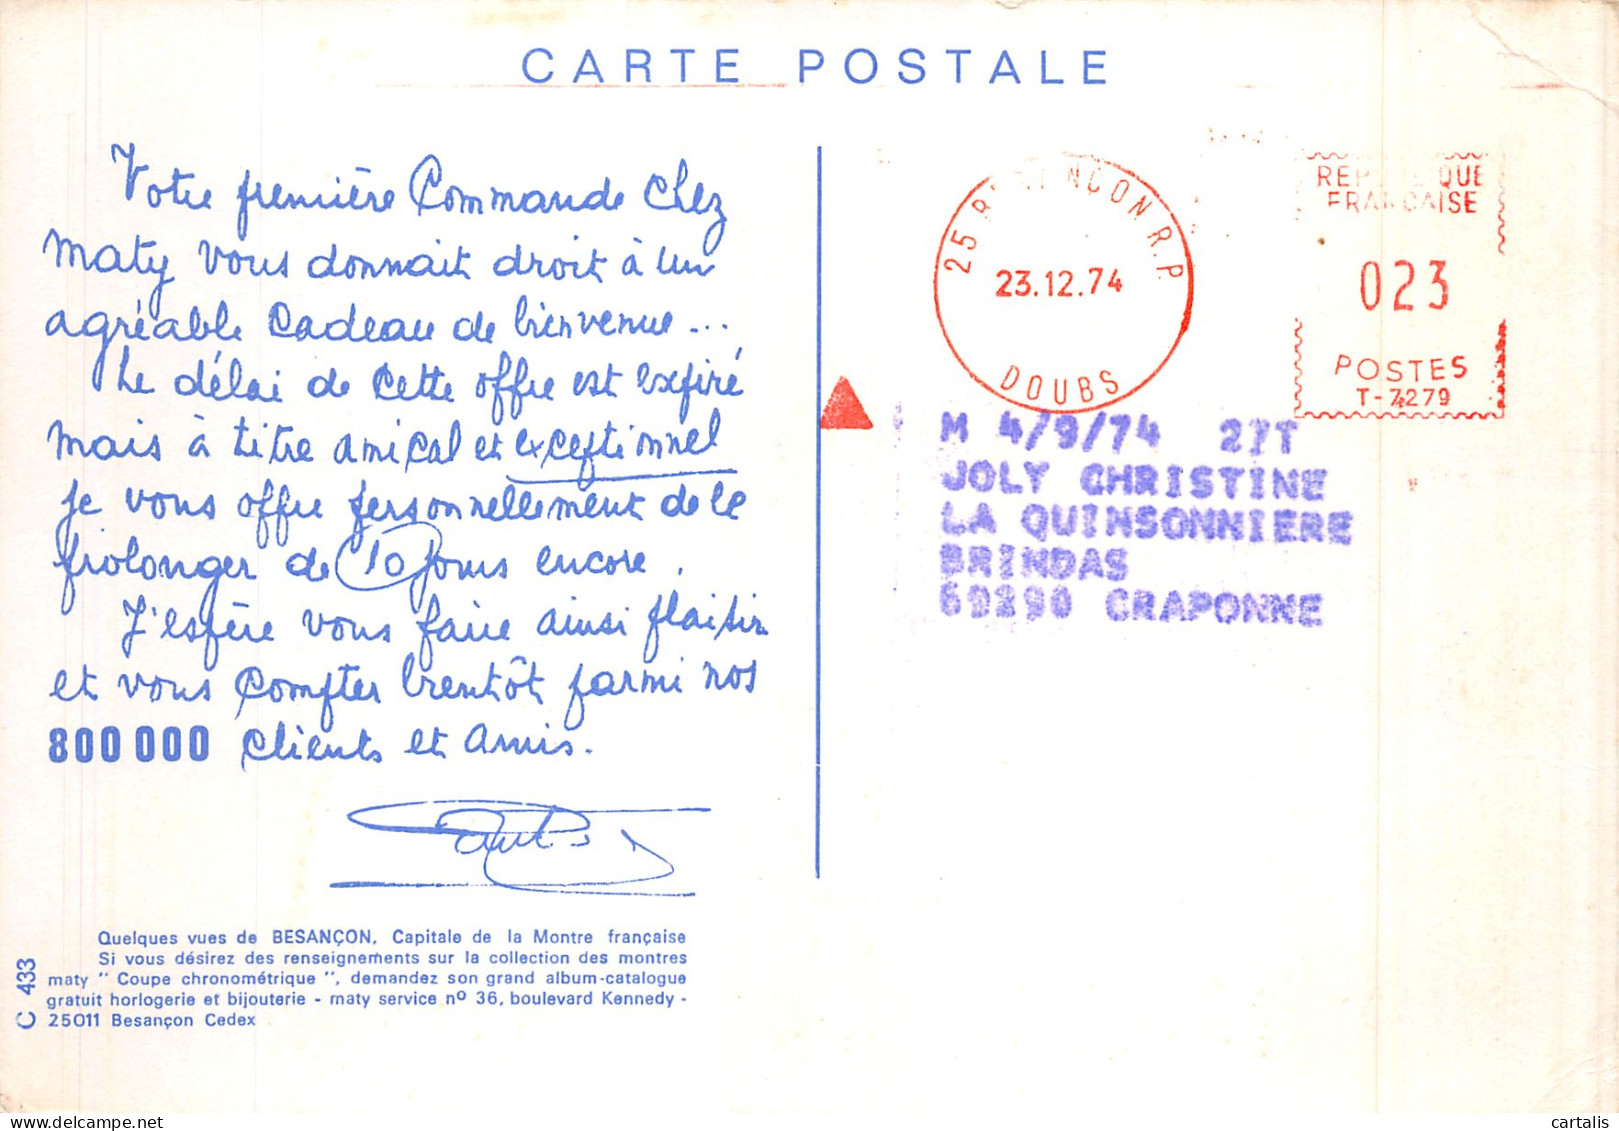 CARTE POSTALE
Votre première Commande chez
maty vous donnait droit à un
agréable Cadeau de bienvenue...
Le délai de cette offre est expiré
mais à titre amical et exceptionnel
je vous offre personnellement de le
prolonger de 10 jours encore.
J'espère vous faire ainsi plaisir
et vous compter bientôt parmi nos
800 000 clients et Amis.
Quelques vues de BESANÇON, Capitale de la Montre française
Si vous désirez des renseignements sur la collection des montres
maty " Coupe chronométrique ", demandez son grand album-catalogue
gratuit horlogerie et bijouterie - maty service nº 36, boulevard Kennedy -
25011 Besançon Cedex
C 433
25 BESANÇON R.P.
23.12.74
DOUBS
REPUBLIQUE
FRANCAISE
023
POSTES
T-7279
M 4/9/74 27T
JOLY CHRISTINE
LA QUINSONNIERE
BRINDAS
69290 CRAPONNE
cartalis